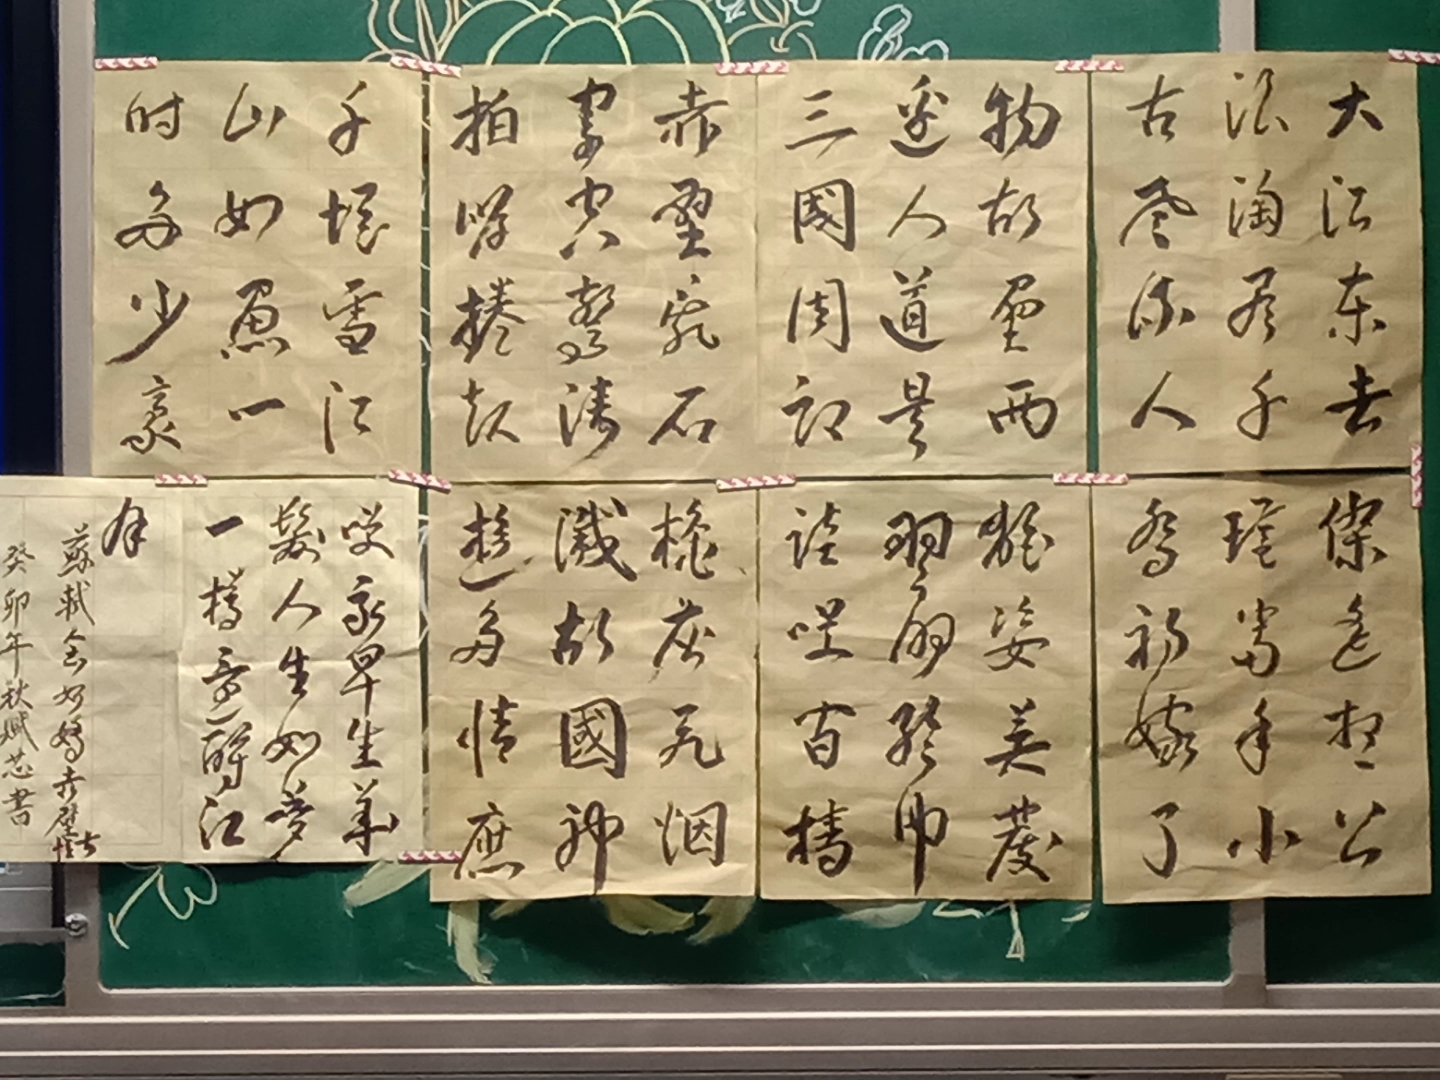 大江东去
浪淘尽千
古风流人
物故垒西
边人道是
三國周郎
赤壁乱石
穿空惊涛
拍岸捲起
千堆雪江
山如画一
时多少豪
傑遥想公
瑾当年小
乔初嫁了
雄姿英发
羽扇纶巾
谈笑间樯
橹灰飞烟
灭故國神
遊多情应
笑我早生华
发人生如梦
一樽还酹江
月
蘇軾念奴嬌赤壁怀古
癸卯年秋斌芯書